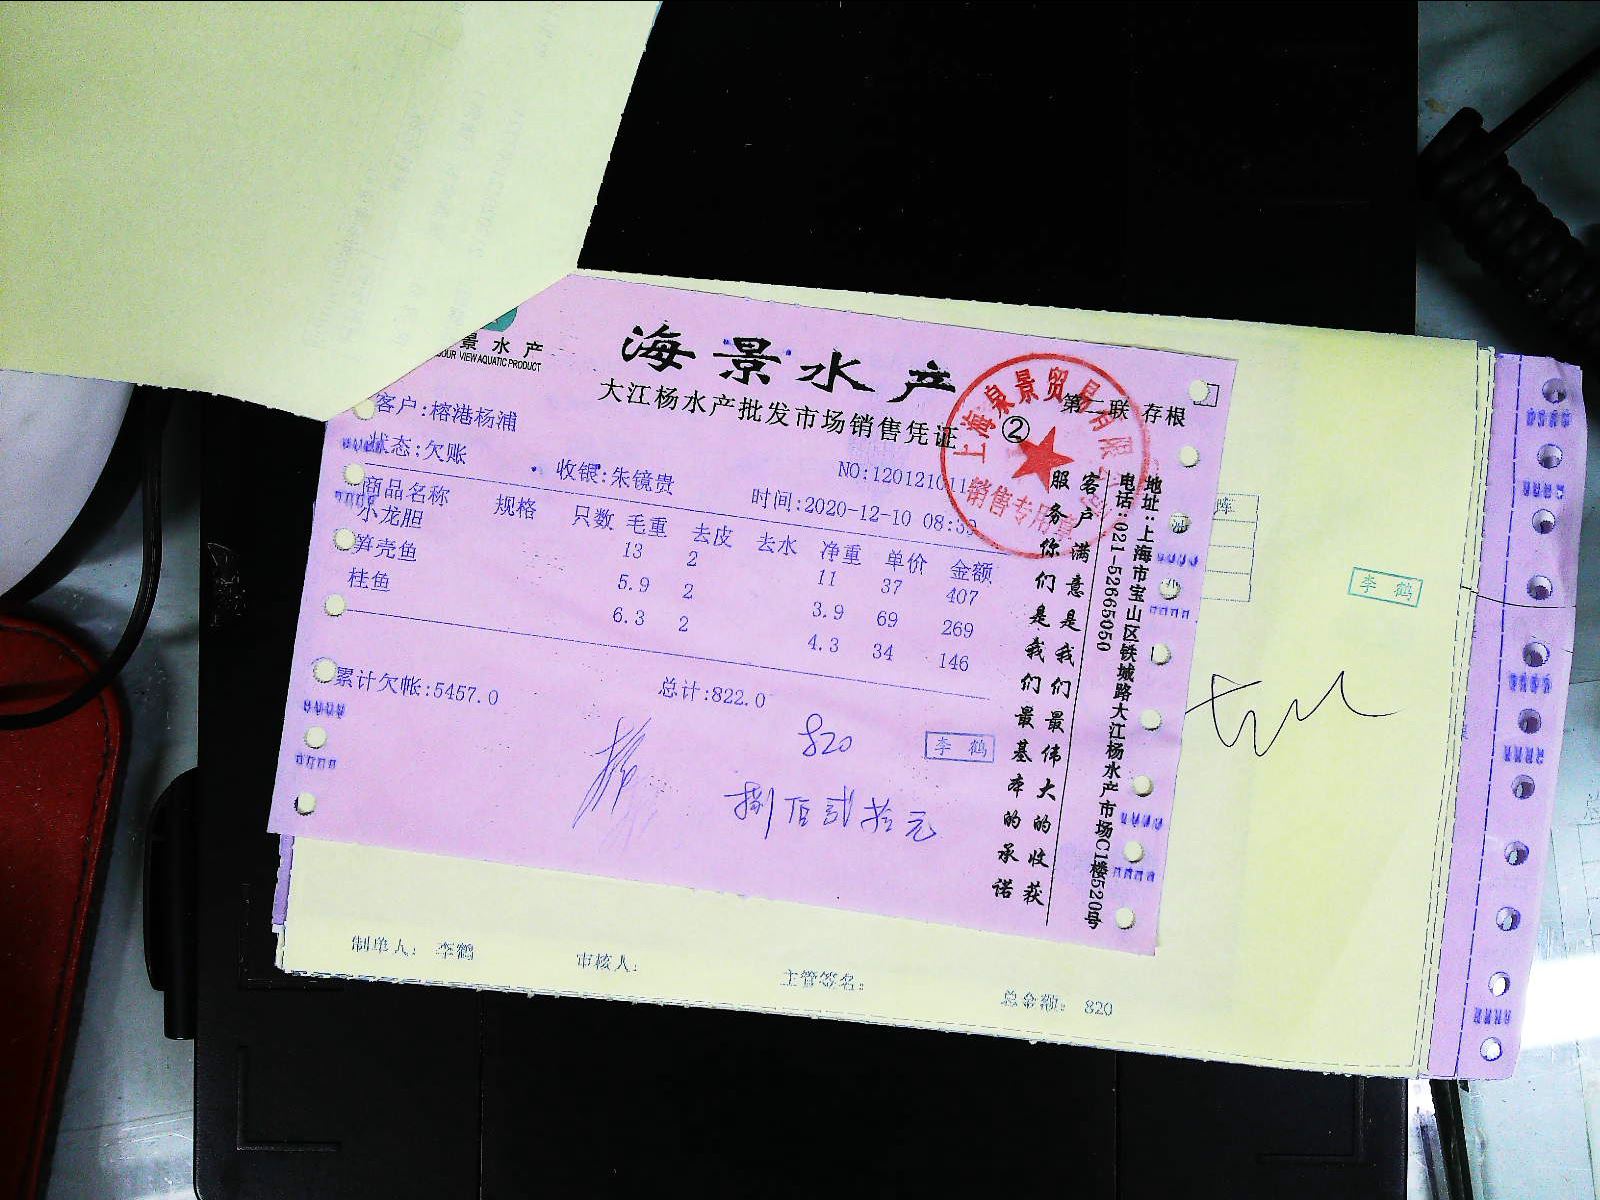 景 水 产
OUR VIEW AQUATIC PRODUCT
海 景 水 产
大江杨水产批发市场销售凭证
② 第二联 存根
客户:榕港杨浦
状态:欠账
收银:朱镜贵
NO:120121011
时间:2020-12-10 08:3
商品名称 规格 只数 毛重 去皮 去水 净重 单价 金额
小龙胆 13 2 11 37 407
笋壳鱼 5.9 2 3.9 69 269
桂鱼 6.3 2 4.3 34 146
累计欠帐:5457.0 总计:822.0
820
李 鹤
捌佰贰拾元
上海泉景贸易有限
销售专用章
服务你们是我们最基本的承诺
客户满意是我们最伟大的收获
电话:021-52665050
地址:上海市宝山区铁城路大江杨水产市场C1楼520号
李 鹤
制单人: 李鹤 审核人: 主管签名: 总金额: 820